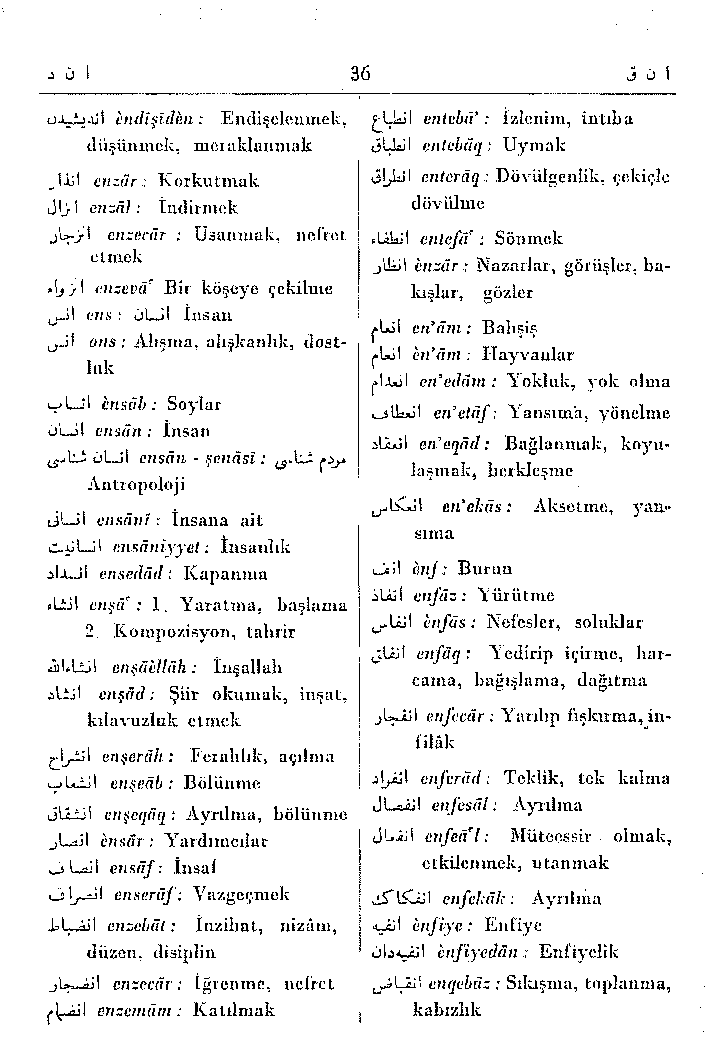 ا ن د 36 ا ن ق
اندیشیدن èndişîdèn : Endişelenmek,
düşünmek, meraklanmak
انذار enzâr : Korkutmak
انزال enzâl : İndirmek
انزجار enzecâr : Usanmak, nefret
etmek
انزواء enzevâ' Bir köşeye çekilme
انس ens : انسان İnsan
انس ons : Alışma, alışkanlık, dost-
luk
انساب ènsâb : Soylar
انسان ensân : İnsan
انسان شناسی ensân - şenâsî : مردم شناسی
Antropoloji
انسانی ensânî : İnsana ait
انسانیت ensâniyyet : İnsanlık
انسداد ensedâd : Kapanma
انشاء enşâ' : 1. Yaratma, başlama
2. Kompozisyon, tahrir
انشاءالله enşâèllâh : İnşallah
انشاد enşâd : Şiir okumak, inşat,
kılavuzluk etmek
انشراح enşerâh : Ferahlık, açılma
انشعاب enşeâb : Bölünme
انشقاق enşeqâq : Ayrılma, bölünme
انصار ènsâr : Yardımcılar
انصاف ensâf : İnsaf
انصراف enserâf : Vazgeçmek
انضباط enzebât : İnzibat, nizâm,
düzen, disiplin
انضجار enzecâr : İğrenme, nefret
انضمام enzemâm : Katılmak
انطباع entebâ' : İzlenim, intıba
انطباق entebâq : Uymak
انطراق enterâq : Dövülgenlik, çekiçle
dövülme
انطفاء entefâ' : Sönmek
انظار ènzâr : Nazarlar, görüşler, ba-
kışlar, gözler
انعام en'âm : Bahşiş
انعام èn'âm : Hayvanlar
انعدام en'edâm : Yokluk, yok olma
انعطاف en'etâf : Yansıma, yönelme
انعقاد en'eqâd : Bağlanmak, koyu-
laşmak, berkleşme
انعکاس en'ekâs : Aksetme, yan-
sıma
انف ènf : Burun
انفاذ enfâz : Yürütme
انفاس ènfâs : Nefesler, soluklar
انفاق enfâq : Yedirip içirme, har-
cama, bağışlama, dağıtma
انفجار enfecâr : Yarılıp fışkırma, in-
filâk
انفراد enferâd : Teklik, tek kalma
انفصال enfesâl : Ayrılma
انفعال enfeâ'l : Müteessir olmak,
etkilenmek, utanmak
انفکاک enfekâk : Ayrılma
انفیه ènfiye : Enfiye
انفیه‌دان ènfiyedân : Enfiyelik
انقباض enqebâz : Sıkışma, toplanma,
kabızlık